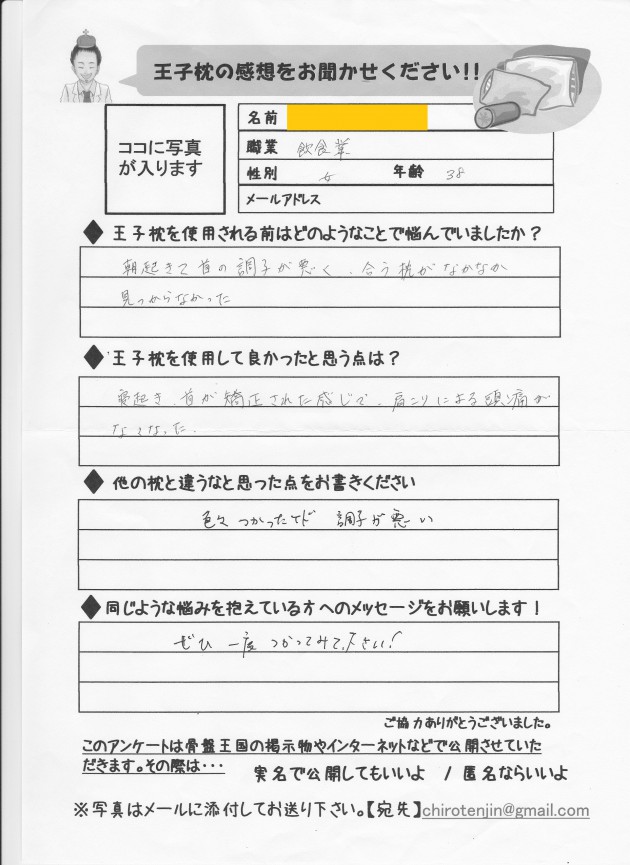 王子枕の感想をお聞かせください!!
ココに写真
が入ります
名前
職業 飲食業
性別 女 年齢 38
メールアドレス
◆王子枕を使用される前はどのようなことで悩んでいましたか？
朝起きて首の調子が悪く、合う枕がなかなか
見つからなかった
◆王子枕を使用して良かったと思う点は？
寝起き、首が矯正された感じで、肩こりによる頭痛が
なくなった.
◆他の枕と違うなと思った点をお書きください
色々つかったけど 調子が悪い
◆同じような悩みを抱えている方へのメッセージをお願いします！
ぜひ 一度 つかってみて下さい!
ご協力ありがとうございました。
このアンケートは骨盤王国の掲示物やインターネットなどで公開させていた
だきます。その際は・・・ 実名で公開してもいいよ / 匿名ならいいよ
※写真はメールに添付してお送り下さい。【宛先】chirotenjin@gmail.com